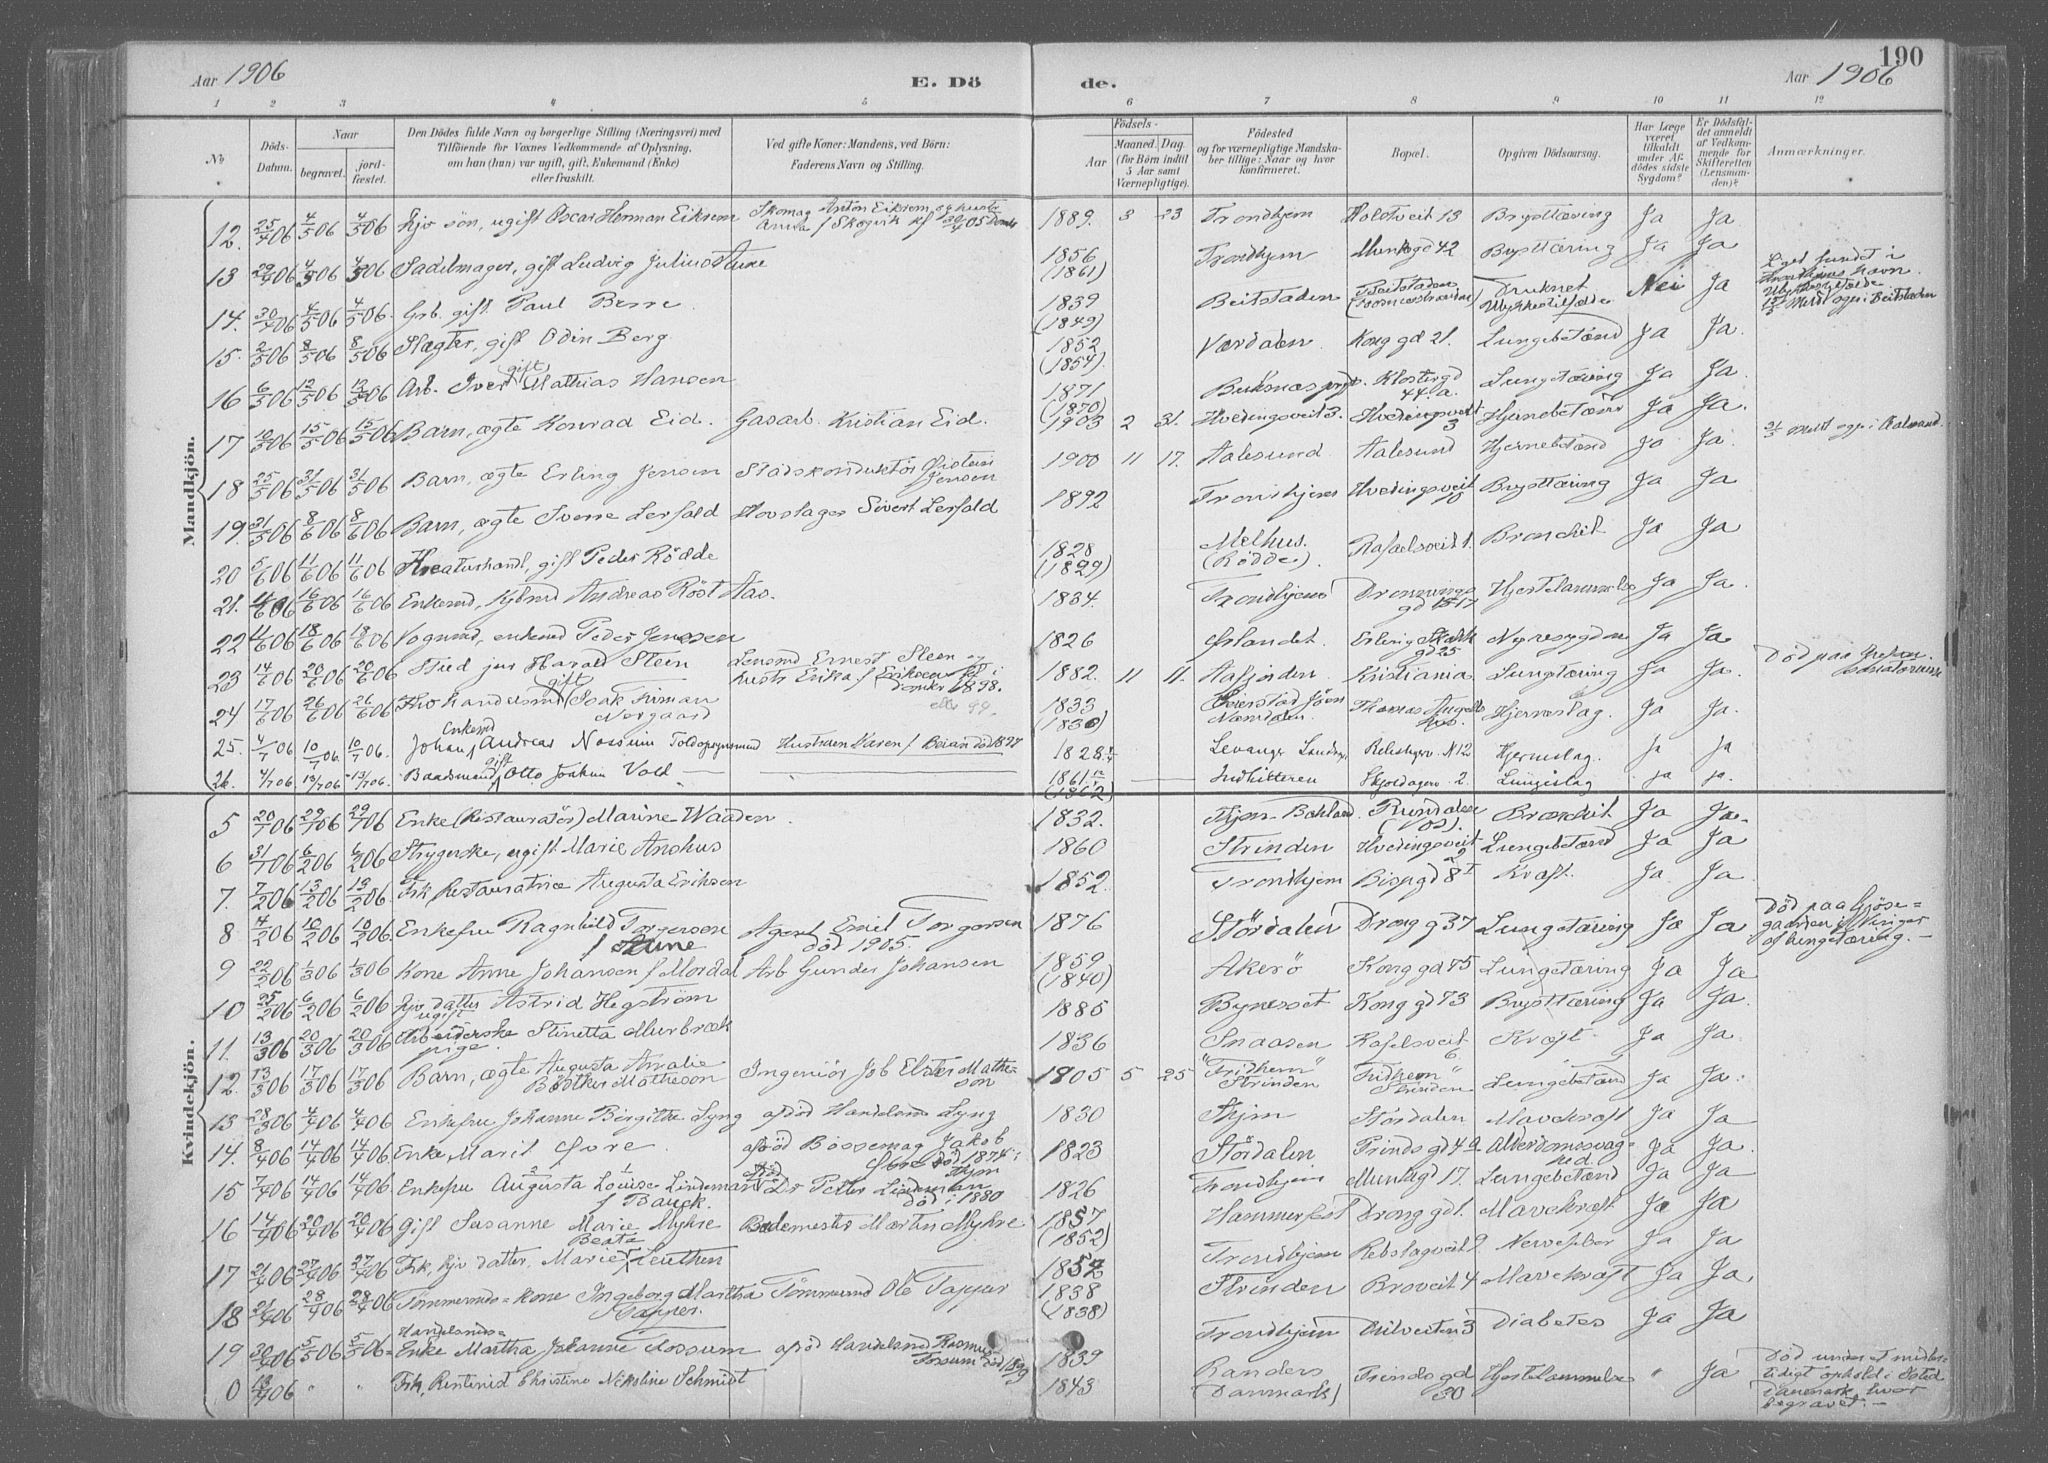 190
Aar 1906
E. Döde.
Aar 1906
1 2 3 4 5 6 7 8 9 10 11 12
No
Döds-
Datum.
Naar
begravet.
jord-
fæstet.
Den Dödes fulde Navn og borgerlige Stilling (Næringsvei) med
Tilföiende for Voxnes Vedkommende af Oplysning,
om han (hun) var ugift, gift, Enkemand (Enke)
eller fraskilt.
Ved gifte Koner: Mandens, ved Börn:
Faderens Navn og Stilling.
Födsels-
Aar
Maaned. Dag.
(for Börn indtil
5 Aar samt
Værnepligtige).
Födested
og for værnepligtige Mandska-
ber tillige: Naar og hvor
konfirmeret.
Bopæl.
Opgiven Dödsaarsag.
Har Læge
været
tilkaldt
under Af-
dödes sidste
Sygdom?
Er Dödsfal-
det anmeldt
af Vedkom-
mende for
Skifteretten
(Lensman-
den)?
Anmærkninger.
Mandkjön.
12. 25/4 06 4/5 06 4/5 06 hjv sön, ugift Oscar Herman Eiksem Skomag Anton Eiksem og hustr 1889. 3 23 Trondhjem 13 Brysttæring Ja Ja
13 29/4 06 4/5 06 4/5 06 Sadelmager, gift Ludvig Julius Aune 1856 (1861) Trondhjem Munkgd 42 Brysttæring Ja Ja
14. 30/4 06 4/5 06 4/5 06 gift Paul 1839 (1849) Beitstaden Beitstaden Druknet Ulykkestilfælde Nei Ja Liget fundet i Trondhjems havn. Meldt opp i Beitstaden
15. 2/5 06 8/5 06 8/5 06 Slagter, gift Odin Berg 1852 (1854) Værdalen Kong gd 21. Lungebetænd Ja Ja.
16 6/5 06 12/5 06 12/5 06 Arb. Iver gift Mathias Hansen 1871 (1870) Klostergd 44.a. Lungetæring Ja Ja
17 10/5 06 15/5 06 15/5 06 Barn, ægte Konrad Eid. Gasarb. Kristian Eid. 1903 2 31. Hvedingsveit 3. Hvedingsveit 3 Hjernebetænd Ja Ja.
18 25/5 06 31/5 06 31/5 06 Barn, ægte Erling Jensen Jensen 1900 11 17. Aalesund Aalesund Hjernebetænd Ja Ja. Meldt opp i Aalesund.
19. 31/5 06 8/6 06 8/6 06 Barn, ægte Sverre Lerfald Hovslager Sivert Lerfald 1892 Trondhjem Hvedingsveit 10 Brysttæring Ja Ja
20 5/6 06 11/6 06 11/6 06 Kreaturhandl, gift Peder Rödde 1828 (1829) Melhus. (Rödde). Rafaelsveit 1. Bronchit Ja Ja
21. 11/6 06 16/6 06 16/6 06 Enkemd, Kjbmd Andreas Röst Aas. 1834. Trondhjem Dronnings gd 15-17 Hjertelammelse Ja Ja
22 11/6 06 18/6 06 18/6 06 Vognmd, enkemd Peder Jenssen 1826 Örlandet. Erling Skakk gd 25 Nyresygdom Ja Ja
23 14/6 06 20/6 06 20/6 06 Stud jur Harald Steen Lensmd Ernest Steen og hustr Erika f Eriksen 1882. 11 11. Aafjorden Kristiania Lungetæring Ja Ja. Död paa Grefsen sanatorium
24 17/6 06 26/6 06 26/6 06 gift Isak Norgaard 1833 (1830) Namdalen Thomas Angells hus. Hjerneslag. Ja Ja.
25. 4/7 06 10/7 06. 10/7 06. Johan enkemd Andreas Nossum Toldopsynsmand Hustruen Karen f. Beian död 1897 1828 Levanger Landsg. N 12 Hjerneslag. Ja Ja
26. 4/7 06 13/7 06 13/7 06. Baadsmand gift Otto Joakim Vold 1861 (1862) Inderöen Skjoldagerv 2. Lungeslag Ja Ja.
Kvindekjön.
5 20/1 06 29/1 06 29/1 06 Enke (Restauratör) Marine Waaden. 1832. Thjem - Bakland Runddalen (Vos). Bronchit Ja Ja.
6 31/1 06 6/2 06 6/2 06 Strygerske, ugift Marie Anshus 1860 Strinden Hvedingsveit 2 Lungebetænd Ja Ja
7. 7/2 06 13/2 06 13/2 06 Frk Restauratrice Augusta Eriksen 1852. Trondhjem Bispgd 8 I Kræft. Ja Ja
8 4/2 06 10/2 06 10/2 06. Enkefru Ragnhild Torgersen f Aune Agent Emil Torgersen död 1905. 1876 Stördalen Drong gd 37 Lungetæring Ja Ja Död paa Gjösegaarden i Meraker af lungetæring. -
9 22/2 06 1/3 06 1/3 06 Kone Anne Johansen f Mordal Arb Gunder Johansen 1859 (1840) Akerö Kong gd 75 Lungetæring Ja Ja
10 25/2 06 6/2 06 6/2 06 hjv datter ugift Astrid Hegström 1885 Bynesset Kong gd 73 Brysttæring Ja Ja.
11. 13/3 06 20/3 06 20/3 06 Arbeiderske pige. Stinetta Murbræk 1836 Snaasen Rafelsveit 6 Kræft Ja Ja.
12. 13/3 06 17/3 06 17/3 06 Barn, ægte Augusta Amalie Bödtker Matheson Ingeniör Job Elster Matheson 1905 5 25 "Fridhem" Strinden Fridhem" Strinden Lungebetænd Ja Ja.
13 28/3 06 4/4 06 4/4 06 Enkefru Johanne Birgitte Lyng afdöd Handelsmd Lyng 1830 Thjem Stördalen Mavekræft Ja Ja
14. 8/4 06 14/4 06 14/4 06 Enke, Marit Övre. afdöd Bössemag Jakob Övre död 1874 i Thjem 1823 Stördalen Prindsgd 4 a Alderdomssvaghed. Ja Ja.
15 7/4 06 14/4 06 14/4 06 Enkefru Augusta Louise Lindeman f Bauck. Dr Peter Lindeman död i 1880 1826 Trondhjem Munkgd 17. Lungebetænd Ja Ja
16 14/4 06 20/4 06 20/4 06 Gift Susanne Marie Myhre Bademester Martin Myhre 1857 (1852) Hammerfest Drong gd 1. Mavekræft Ja Ja
17 21/4 06 27/4 06 27/4 06 Frk, hjv datter, Marie Beata Leuthen 1852 Trondhjem Rebslagveit 9 Nervefeber Ja Ja
18 21/4 06 28/4 06 28/4 06 Tömmermds = kone Ingeborg Martha Tapper. Tömmermd Ole Tapper 1838 (1838) Strinden Broveit 4 Mavekræft Ja Ja.
19 30/4 06 5/5 06 5/5 06 Handelsmds= Enke Martha Johanne Tossum afdöd Handelsmd Rasmus Tossum död 1839 Trondhjem 3 Diabetes Ja Ja
0 13/4 06 " " Frk, Rentenist Christine Nikoline Schmidt 1843 Randers (Danmark) Prindsgd 30 Hjertelammelse " Ja Död under et midlertidigt ophold i Danmark, hvor begravet. -